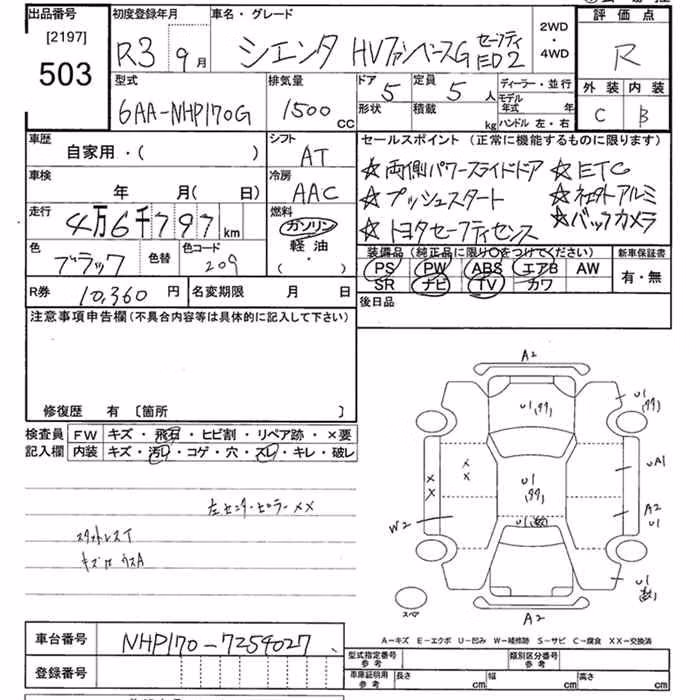 出品番号 初度登録年月 車名・グレード 評価点
[2197]
503
R3 9月 シエンタ HVファンベースG セーフティED2 2WD・4WD R
型式 排気量 ドア 定員 ディーラー・並行 外装 内装
6AA-NHP170G 1500cc 5 5人 モデル年式 年 C B
形状 積載 kg ハンドル 左・右
車歴 シフト セールスポイント(正常に機能するものに限ります)
自家用・( ) AT ☆両側パワースライドドア ☆ETC
車検 冷房 ☆プッシュスタート
年 月( 日) AAC ☆トヨタセーフティセンス ☆バックカメラ
走行 燃料
4万6千797km ガソリン
色 色替 色コード 軽油 装備品(純正品に限り○をつけてください) 新車保証書
ブラック 209 ( ・ ) PS PW ABS エアB AW 有・無
SR ナビ TV カワ
R券 10,360円 名変期限 月 日 後日品
注意事項申告欄(不具合内容等は具体的に記入して下さい)
修復歴 有 [箇所 ]
検査員 FW キズ・飛石・ヒビ割・リペア跡・×要
記入欄 内装 キズ・汚レ・コゲ・穴・スレ・キレ・破レ
左センターピラー XX
スタットレスT
A2
U1
U1
U1
UA1
XX
XX
A2
U1
W2
U1
U1
スペア
A2
A-キズ E-エクボ U-凹み W-補修跡 S-サビ C-腐食 XX-交換済
車台番号 NHP170-7254027
型式指定番号 参考 類別区分番号 参考
登録番号 車庫証明用 参考 長さ cm 幅 cm 高さ cm